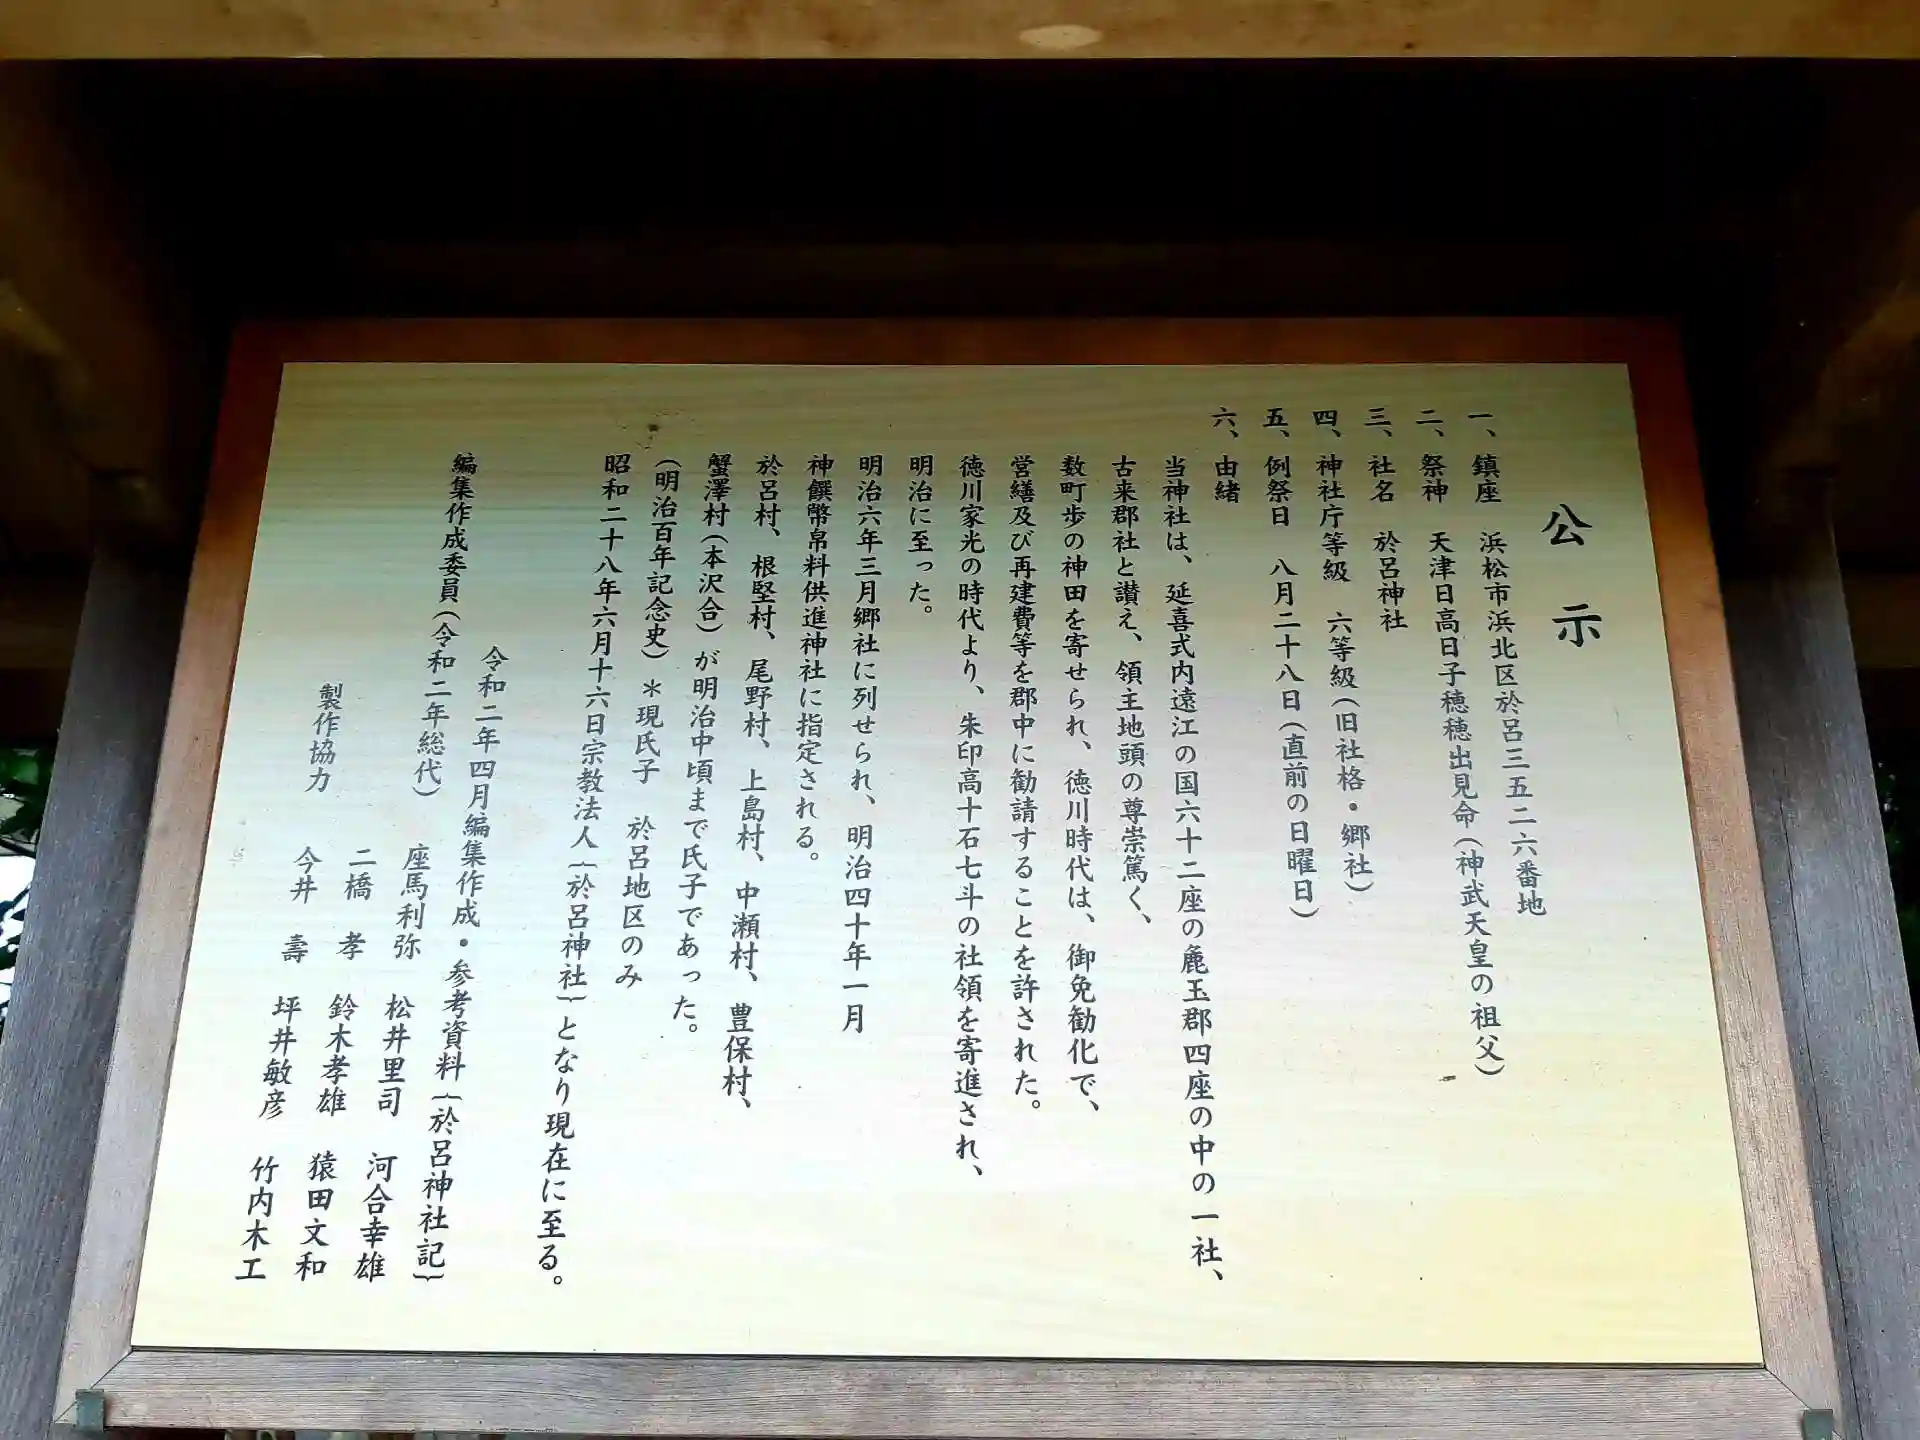 公示
一、鎮座　浜松市浜北区於呂三五二六番地
二、祭神　天津日高日子穂穂出見命(神武天皇の祖父)
三、社名　於呂神社
四、神社庁等級　六等級(旧社格・郷社)
五、例祭日　八月二十八日(直前の日曜日)
六、由緒
当神社は、延喜式内遠江の国六十二座の麁玉郡四座の中の一社、
古来郡社と讃え、領主地頭の尊崇篤く、
数町歩の神田を寄せられ、徳川時代は、御免勧化で、
営繕及び再建費等を郡中に勧請することを許された。
徳川家光の時代より、朱印高十石七斗の社領を寄進され、
明治に至った。
明治六年三月郷社に列せられ、明治四十年一月
神饌幣帛料供進神社に指定される。
於呂村、根堅村、尾野村、上島村、中瀬村、豊保村、
蟹澤村(本沢合)が明治中頃まで氏子であった。
(明治百年記念史)＊現氏子　於呂地区のみ
昭和二十八年六月十六日宗教法人{於呂神社}となり現在に至る。
令和二年四月編集作成・参考資料{於呂神社記}
編集作成委員(令和二年総代)　座馬利弥　松井里司　河合幸雄
二橋　孝　鈴木孝雄　猿田文和
製作協力　今井　壽　坪井敏彦　竹内木工